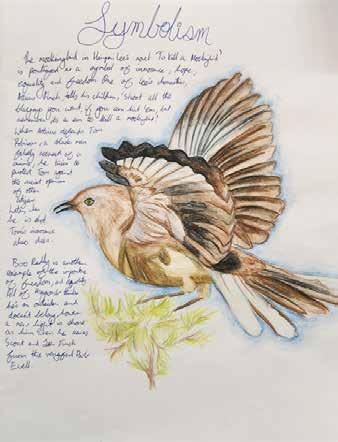 Symbolism
The mockingbird in Harper Lee's novel 'To Kill a Mockingbird'
is portrayed as a symbol of innocence, hope,
equality and freedom. One of Lee's characters,
Atticus Finch tells his children, 'Shoot all the
bluejays you want, if you can hit 'em, but
remember its a sin to kill a mockingbird.'
When Atticus defends Tom
Robinson, a black man
falsely accused of a
crime, he tries to
protect Tom against
the racist opinions
of other
he is shot
Tom's innocence
also dies.
Boo Radley is another
example of the
of freedom and equality.
he's an outsider and
doesn't belong, however
a new light is shone
on him when he saves
Scout and Jem Finch
from the Bob
Ewell.